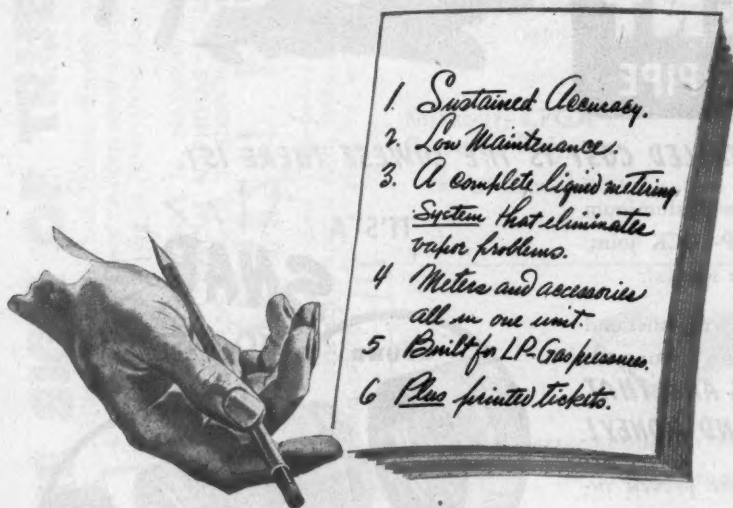 1. Sustained Accuracy.
2. Low Maintenance.
3. A complete liquid metering
System that eliminates
vapor problems.
4 Meters and accessories
all in one unit.
5 Built for LP-Gas pressures.
6 Plus printed tickets.